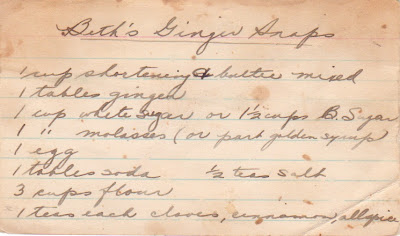 Beth's Ginger Snaps
1 cup shortening & butter mixed
1 tables ginger
1 cup white sugar or 1½ cups B. Sugar
1 " molasses (or part golden syrup
1 egg
1 tables soda ½ teas salt
3 cups flour
1 teas each cloves, cinnamon, allspice